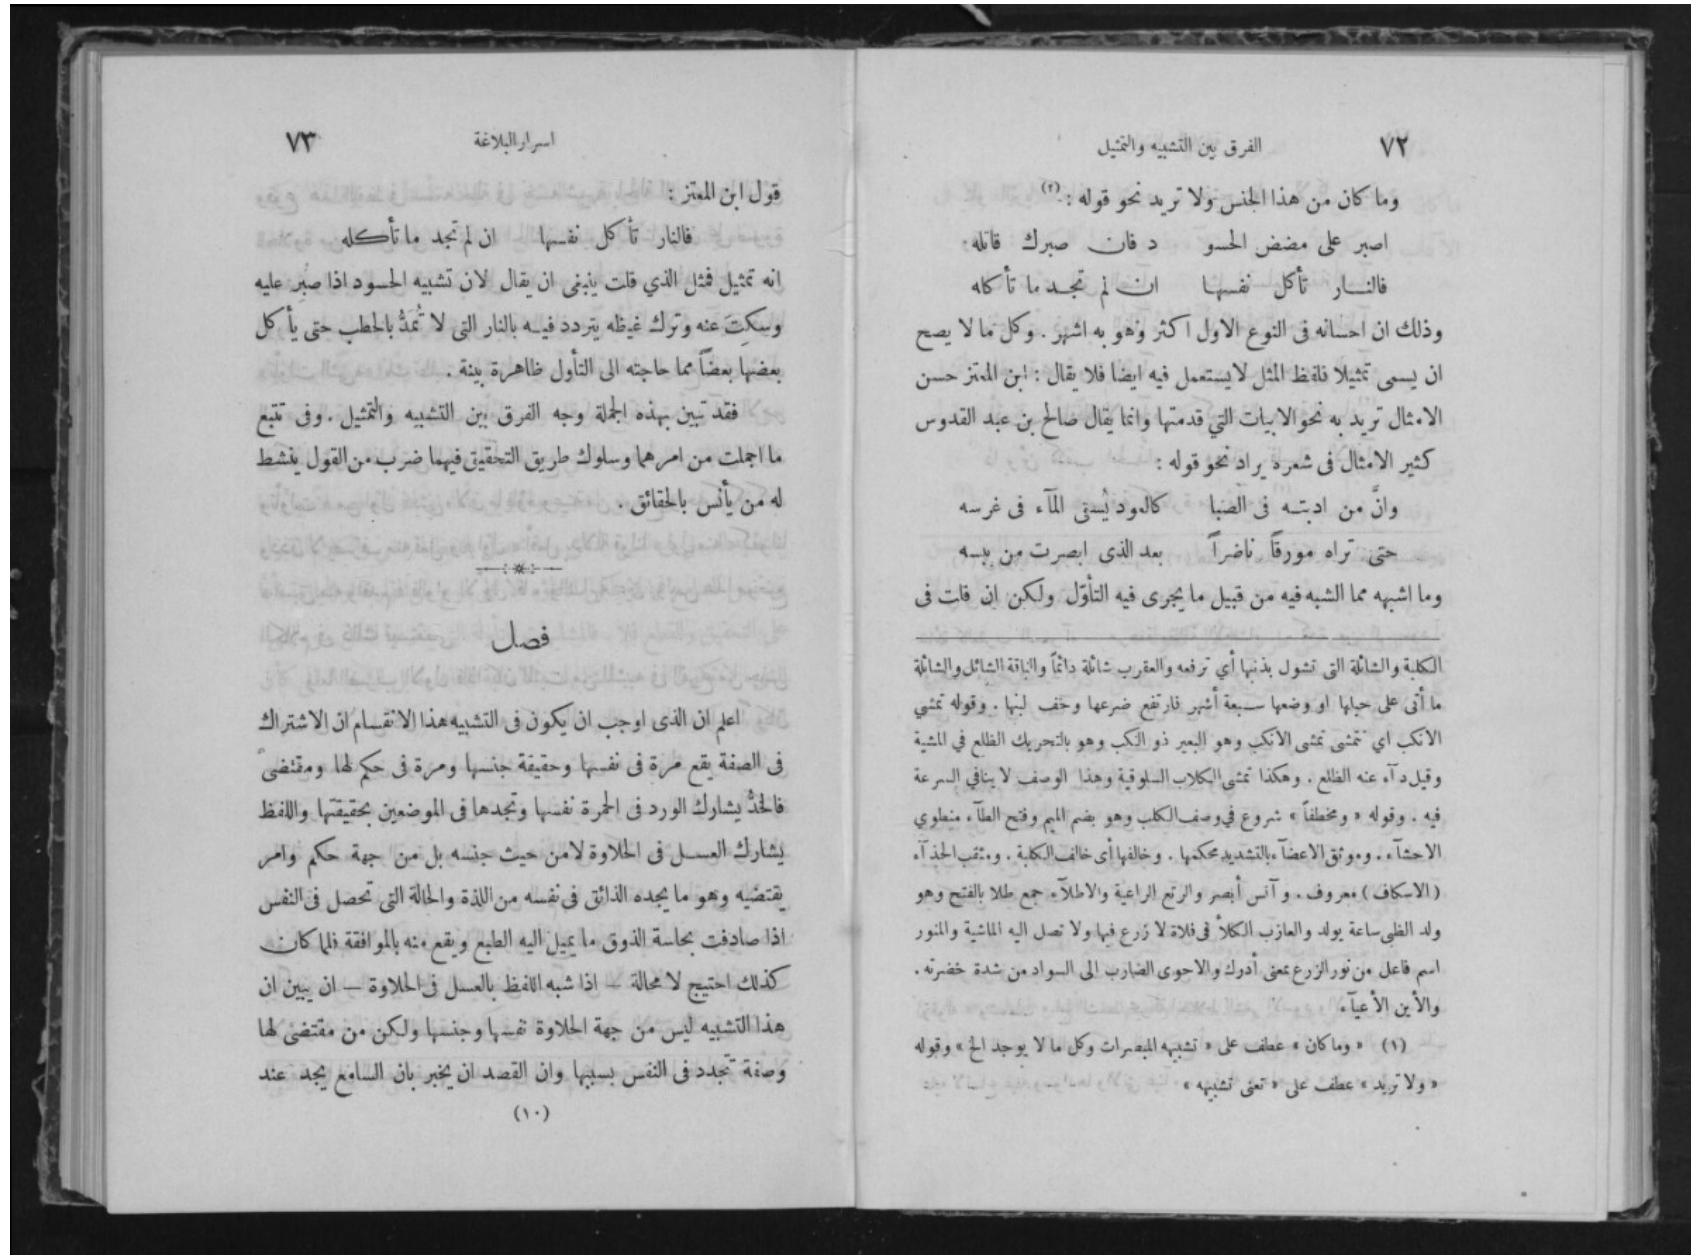 ٧٢ الفرق بين التشبيه والتمثيل
وما كان من هذا الجنس ولا تريد نحو قوله : (٢)
اصبر على مضض الحسو د فان صبرك قاتله
فالنار تأكل نفسها ان لم تجد ما تأكله
وذلك ان احسانه فى النوع الاول اكثر وهو به اشهر . وكل ما لا يصح
ان يسمى تمثيلا فلفظ المثل لا يستعمل فيه ايضا فلا يقال : ابن المعتز حسن
الامثال تريد به نحو الابيات التي قدمتها وانما يقال صالح بن عبد القدوس
كثير الامثال فى شعره يراد نحو قوله :
وانَّ من ادبته فى الصبا كالعود يُسقى المآء فى غرسه
حتى تراه مورقاً ناضراً بعد الذى ابصرت من يبسه
وما اشبهه مما الشبه فيه من قبيل ما يجرى فيه التأوّل ولكن ان قلت فى
الكلبة والشائلة التى تشول بذنبها أي ترفعه والعقرب شائلة دائماً والناقة الشائل والشائلة
ما أتى على حملها او وضعها سبعة أشهر فارتفع ضرعها وخف لبنها . وقوله تمشي
الانكب اي تتمشى تمشى الانكب وهو البعير ذو النكب وهو بالتحريك الظلع في المشية
وقيل دآء عنه الظلع . وهكذا تمشى الكلاب السلوقية وهذا الوصف لا ينافي السرعة
فيه . وقوله « ومخطفاً » شروع في وصف الكلب وهو بضم الميم وفتح الطآء منطوي
الاحشآء . وموثق الاعضآء بالتشديد محكمها . وخالفها أى خالف الكلبة . ومثقب الحذآء
(الاسكاف) معروف . وآنس أبصر والرتع الراعية والاطلآء جمع طلا بالفتح وهو
ولد الظبى ساعة يولد والعازب الكلأ فى فلاة لا زرع فيها ولا تصل اليه الماشية والمنور
اسم فاعل من نور الزرع بمعنى أدرك والاحوى الضارب الى السواد من شدة خضرته .
والأين الأعيآء
(١) « وما كان » عطف على « تشبيه المبصرات وكل ما لا يوجد الخ » وقوله
« ولا تريد » عطف على « تعنى تشبيهه »
اسرار البلاغة ٧٣
قول ابن المعتز :
فالنار تأكل نفسها ان لم تجد ما تأكله
انه تمثيل فمثل الذي قلت ينبغى ان يقال لان تشبيه الحسود اذا صُبر عليه
وسكِتَ عنه وترك غيظه يتردد فيه بالنار التى لا تُمَدُّ بالحطب حتى يأكل
بعضها بعضاً مما حاجته الى التأول ظاهرة بينة .
فقد تبين بهذه الجملة وجه الفرق بين التشبيه والتمثيل . وفى تتبع
ما اجملت من امرهما وسلوك طريق التحقيق فيهما ضرب من القول ينشط
له من يأنس بالحقائق .
فصل
اعلم ان الذى اوجب ان يكون فى التشبيه هذا الانقسام ان الاشتراك
فى الصفة يقع مرة فى نفسها وحقيقة جنسها ومرة فى حكم لها ومقتضى
فالخدُّ يشارك الورد فى الحمرة نفسها وتجدها فى الموضعين بحقيقتها واللفظ
يشارك العسل فى الحلاوة لا من حيث جنسه بل من جهة حكم وامر
يقتضيه وهو ما يجده الذائق فى نفسه من اللذة والحالة التى تحصل فى النفس
اذا صادفت بحاسة الذوق ما يميل اليه الطبع ويقع منه بالموافقة فلما كان
كذلك احتيج لا محالة — اذا شبه اللفظ بالعسل فى الحلاوة — ان يبين ان
هذا التشبيه ليس من جهة الحلاوة نفسها وجنسها ولكن من مقتضى لها
وصفة تتجدد فى النفس بسببها وان القصد ان يخبر بان السامع يجد عند
(١٠)